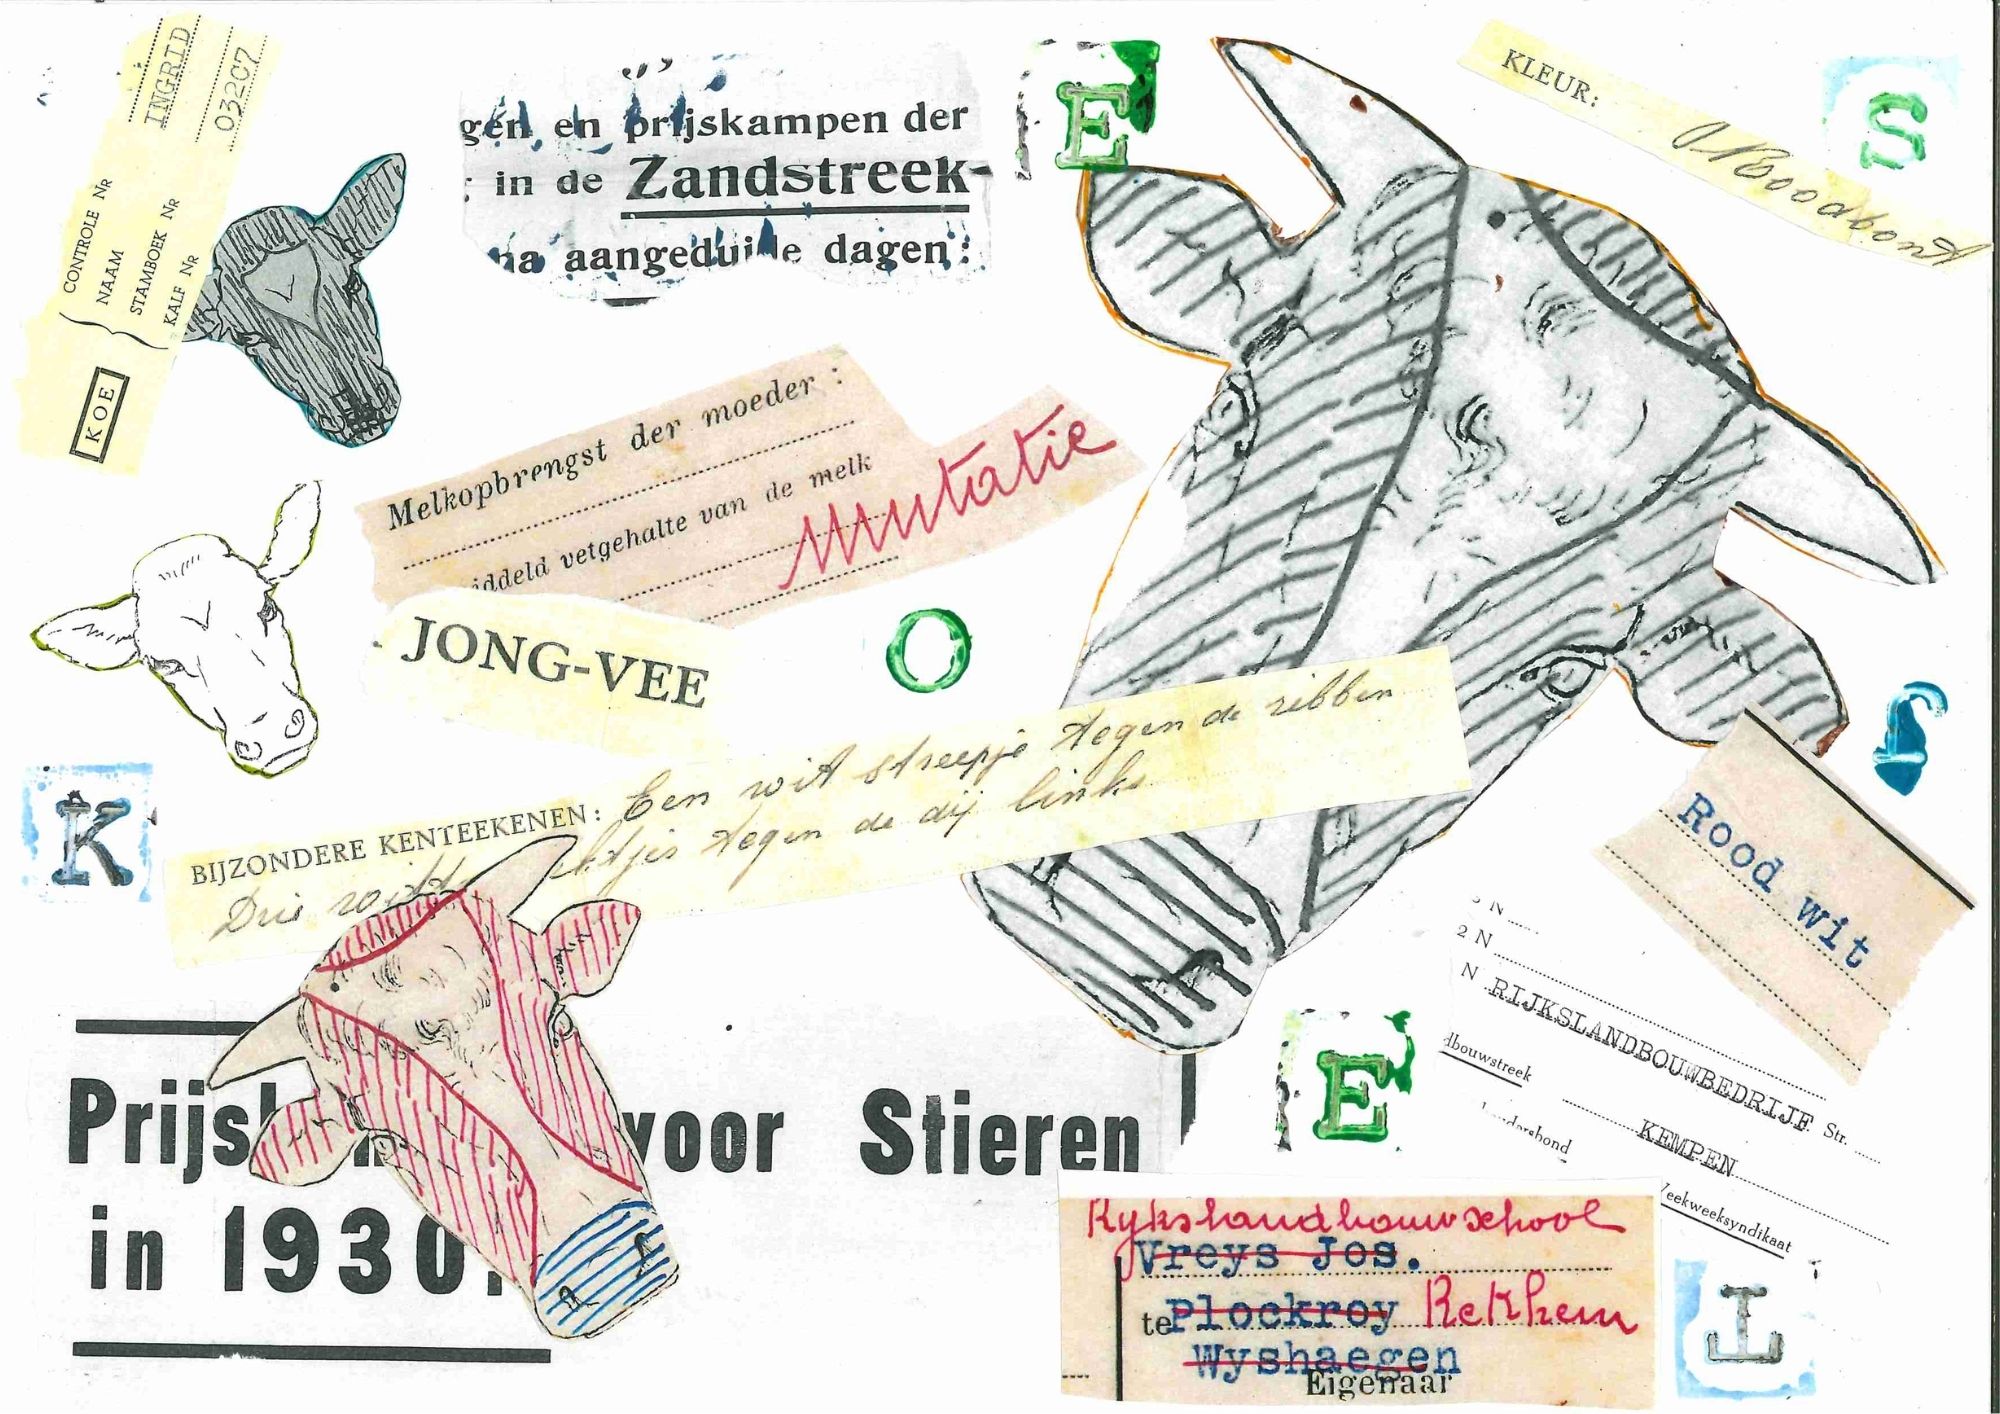 CONTROLE NR
NAAM INGRID
STAMBOEK NR 032C7
KALF NR
KOE
gen en prijskampen der
: in de Zandstreek-
na aangeduide dagen :
E
KLEUR: Roodbont
S
Melkopbrengst der moeder :
iddeld vetgehalte van de melk
Mutatie
JONG-VEE
O
K
BIJZONDERE KENTEEKENEN: Een wit streepje tegen de ribben
Drie witte tegen de dij links
S
Rood wit
2 N
N RIJKSLANDBOUWBEDRIJF Str.
dbouwstreek KEMPEN
Veekweeksyndikaat
E
voor Stieren
in 1930.
Rijkslandbouwschool
Vreys Jos.
te Plockroy Rekhem
Wyshaegen
Eigenaar
T